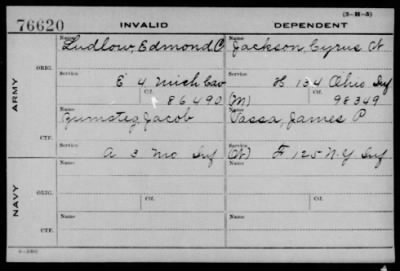 (3-M-5)
76620 INVALID DEPENDENT
Name Name
Ludlow, Edmond C Jackson, Cyrus N
ORIG. Service Service
E 4 Mich Cav H 134 Ohio Inf
Ctf. Ctf.
86490 (M) 98349
ARMY
Name Name
Zumsteg, Jacob Vassa, James P
CTF. Service Service
A 3 Mo Inf (W) F 125 N.Y Inf
Name Name
ORIG. Service Service
Ctf. Ctf.
NAVY
Name Name
CTF. Service Service